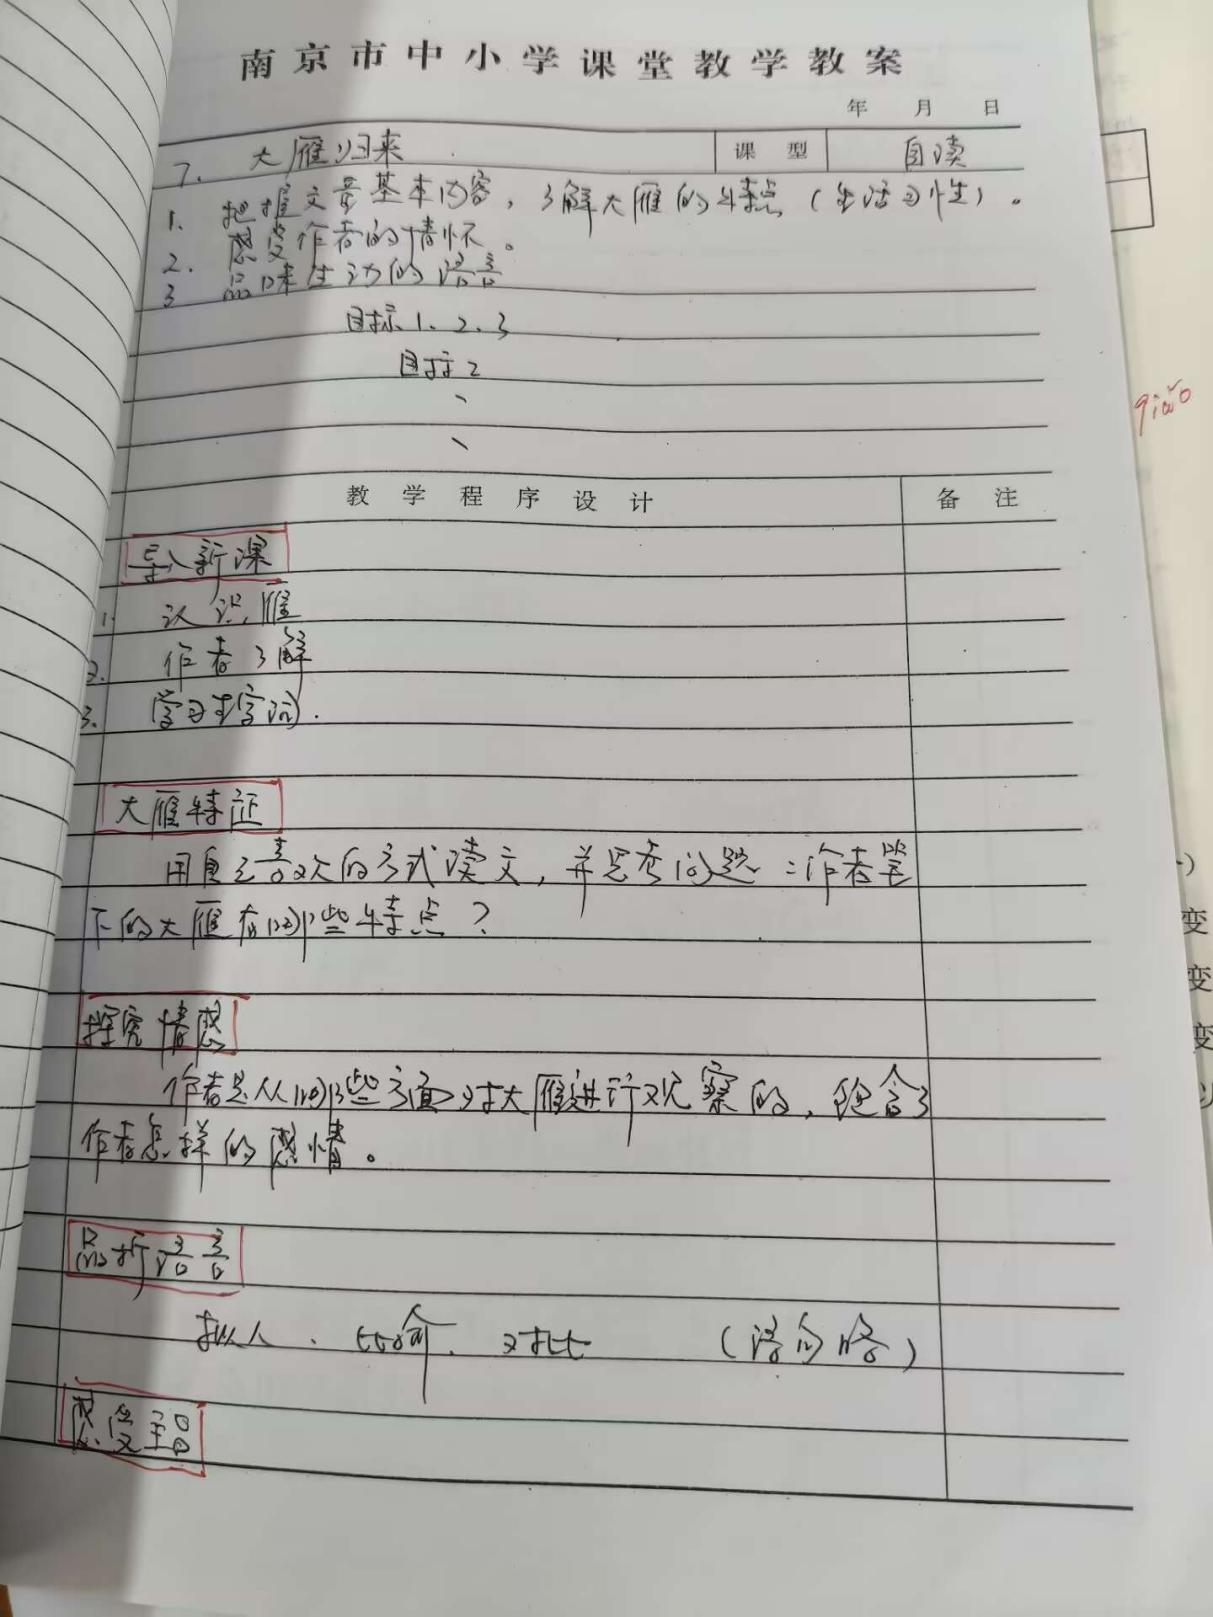 南京市中小学课堂教学教案
年 月 日
7. 大雁归来 课型 自读
1. 把握文章基本内容，了解大雁的特点（生活习性）。
2. 感受作者的情怀。
3 品味生动的语言
目标1、2、3
目标2
、
、
教学程序设计 备注
导入新课
1. 认识雁
2. 作者了解
3. 学习生字词.
大雁特征
用自己喜欢的方式读文，并思考问题：作者笔
下的大雁有哪些特点？
探究情感
作者是从哪些方面对大雁进行观察的，饱含了
作者怎样的感情。
品析语言
拟人、比喻、对比 （语句略）
感受主旨
qiǎo
变
变
变